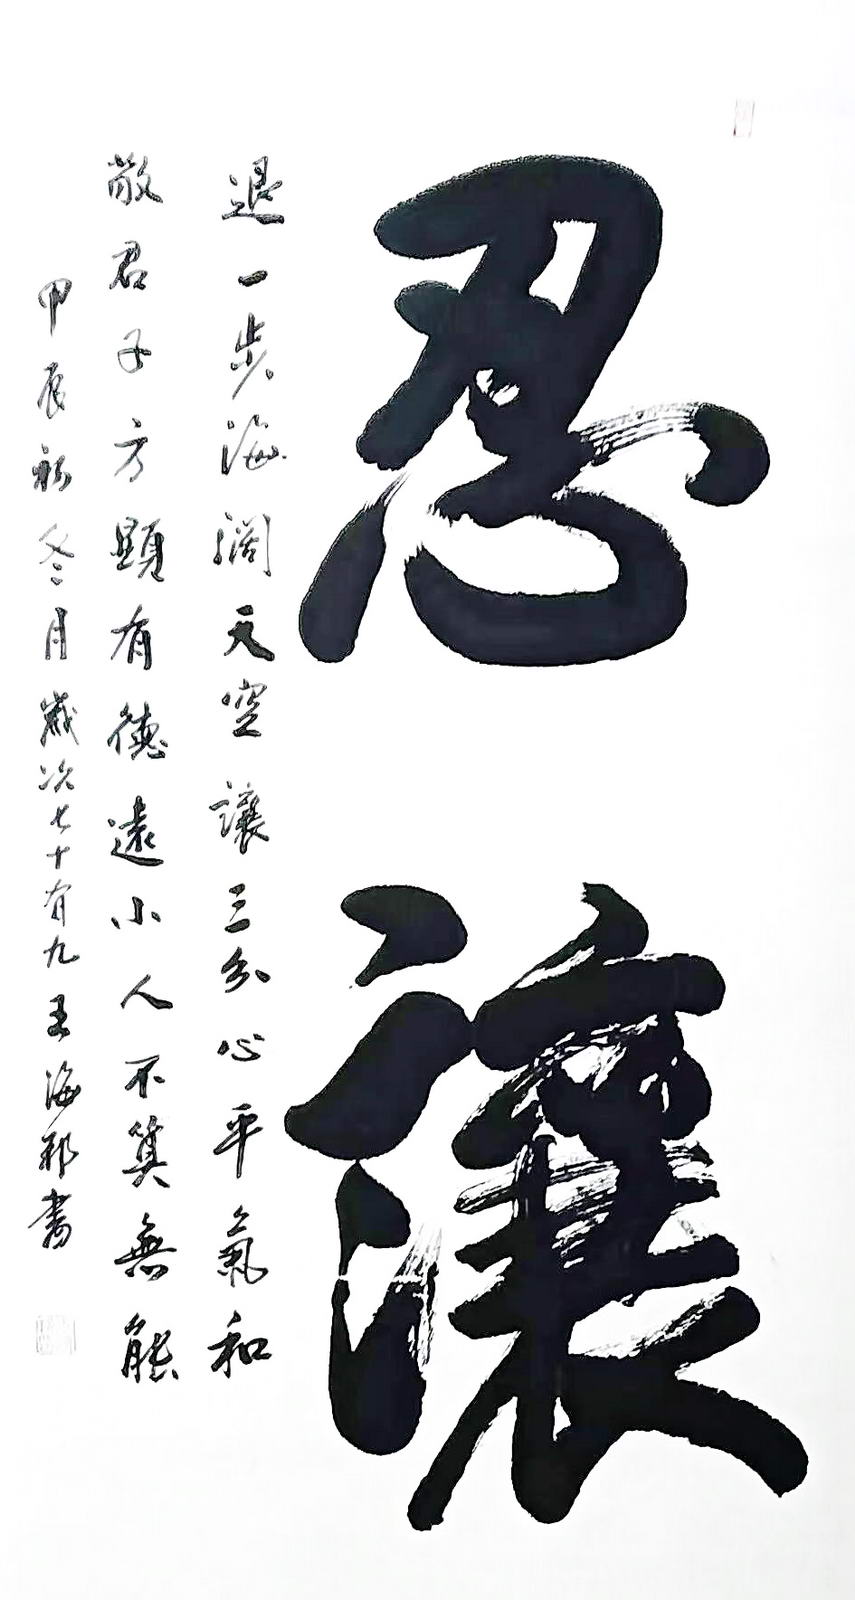 忍讓
退一步海阔天空讓三分心平氣和
敬君子方顯有德遠小人不算無能
甲辰初冬月歲次七十有九王海邦書